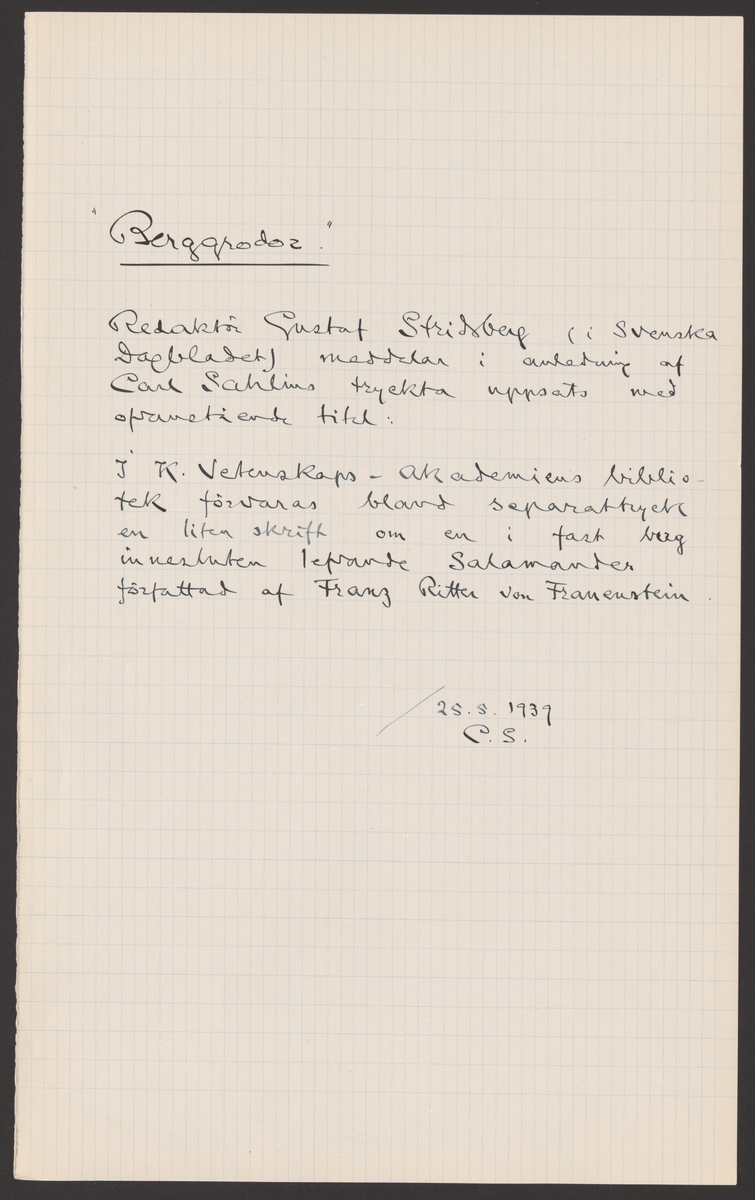 "Berggrodor."
Redaktör Gustaf Stridsberg (i Svenska
Dagbladet) meddelar i anledning af
Carl Sahlins tryckta uppsats med
ofvanstående titel:
I K. Vetenskaps-Akademiens biblio-
tek förvaras bland separattryck
en liten skrift om en i fast berg
innesluten lefvande Salamander
författad af Franz Ritter von Frauenstein.
25.5.1939
C.S.